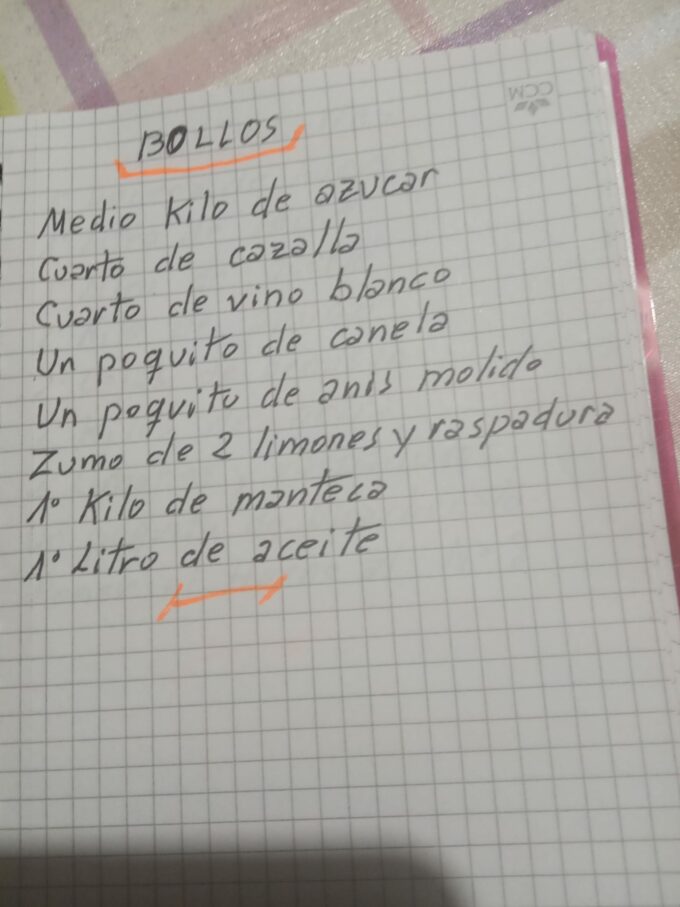 CCM
BOLLOS
Medio Kilo de azucar
Cuarto de cazalla
Cuarto de vino blanco
Un poquito de canela
Un poquito de anis molido
Zumo de 2 limones y raspadura
1º Kilo de manteca
1º Litro de aceite